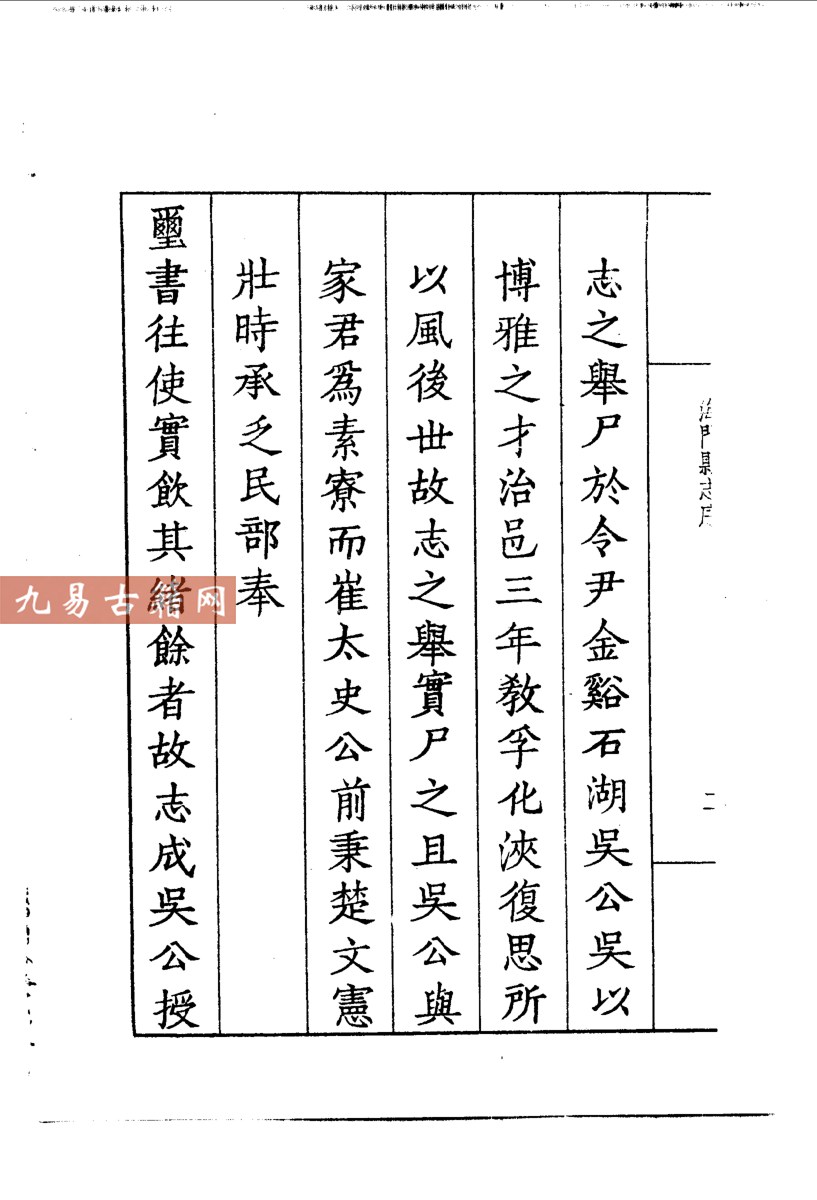 志之舉尸於令尹金谿石湖吳公吳以
博雅之才治邑三年教孚化浹復思所
以風後世故志之舉實尸之且吳公與
家君爲素寮而崔太史公前秉楚文憲
壯時承乏民部奉
璽書往使實飲其緒餘者故志成吳公授
海門縣志序
二
九易古籍网